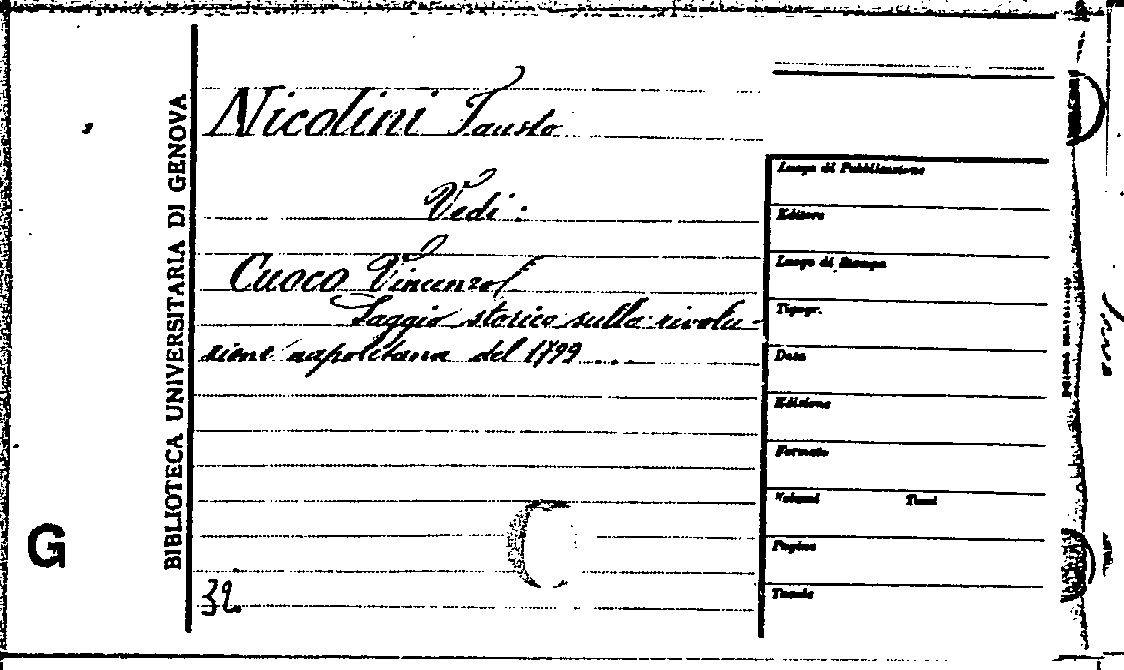 Nicolini Fausto
Vedi:
Cuoco Vincenzo
Saggio storico sulla rivolu-
zione napoletana del 1799....
32
BIBLIOTECA UNIVERSITARIA DI GENOVA
G
Luogo di Pubblicazione
Editore
Luogo di Stampa
Tipogr.
Data
Edizione
Formato
Volumi Tomi
Pagine
Tavole